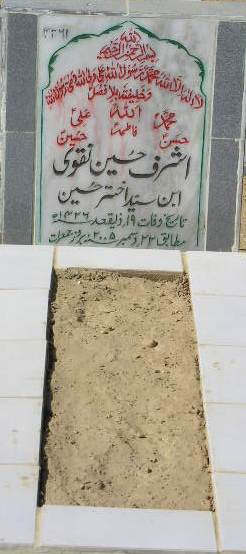 ۴۳۶۱
اللہ
بسم اللہ الرحمن الرحیم
لا الہ الا اللہ محمد رسول اللہ علی ولی اللہ وصی رسول اللہ
وخلیفتہ بلا فصل
محمدؐ اللہ علیؑ
حسنؑ فاطمہؑ حسینؑ
اشرف حسین نقوی
ابن سید اختر حسین
تاریخ وفات ۱۹؍ ذیقعد ۱۴۲۶ھ
مطابق ۲۲ دسمبر ۲۰۰۵ء بروز جمعرات